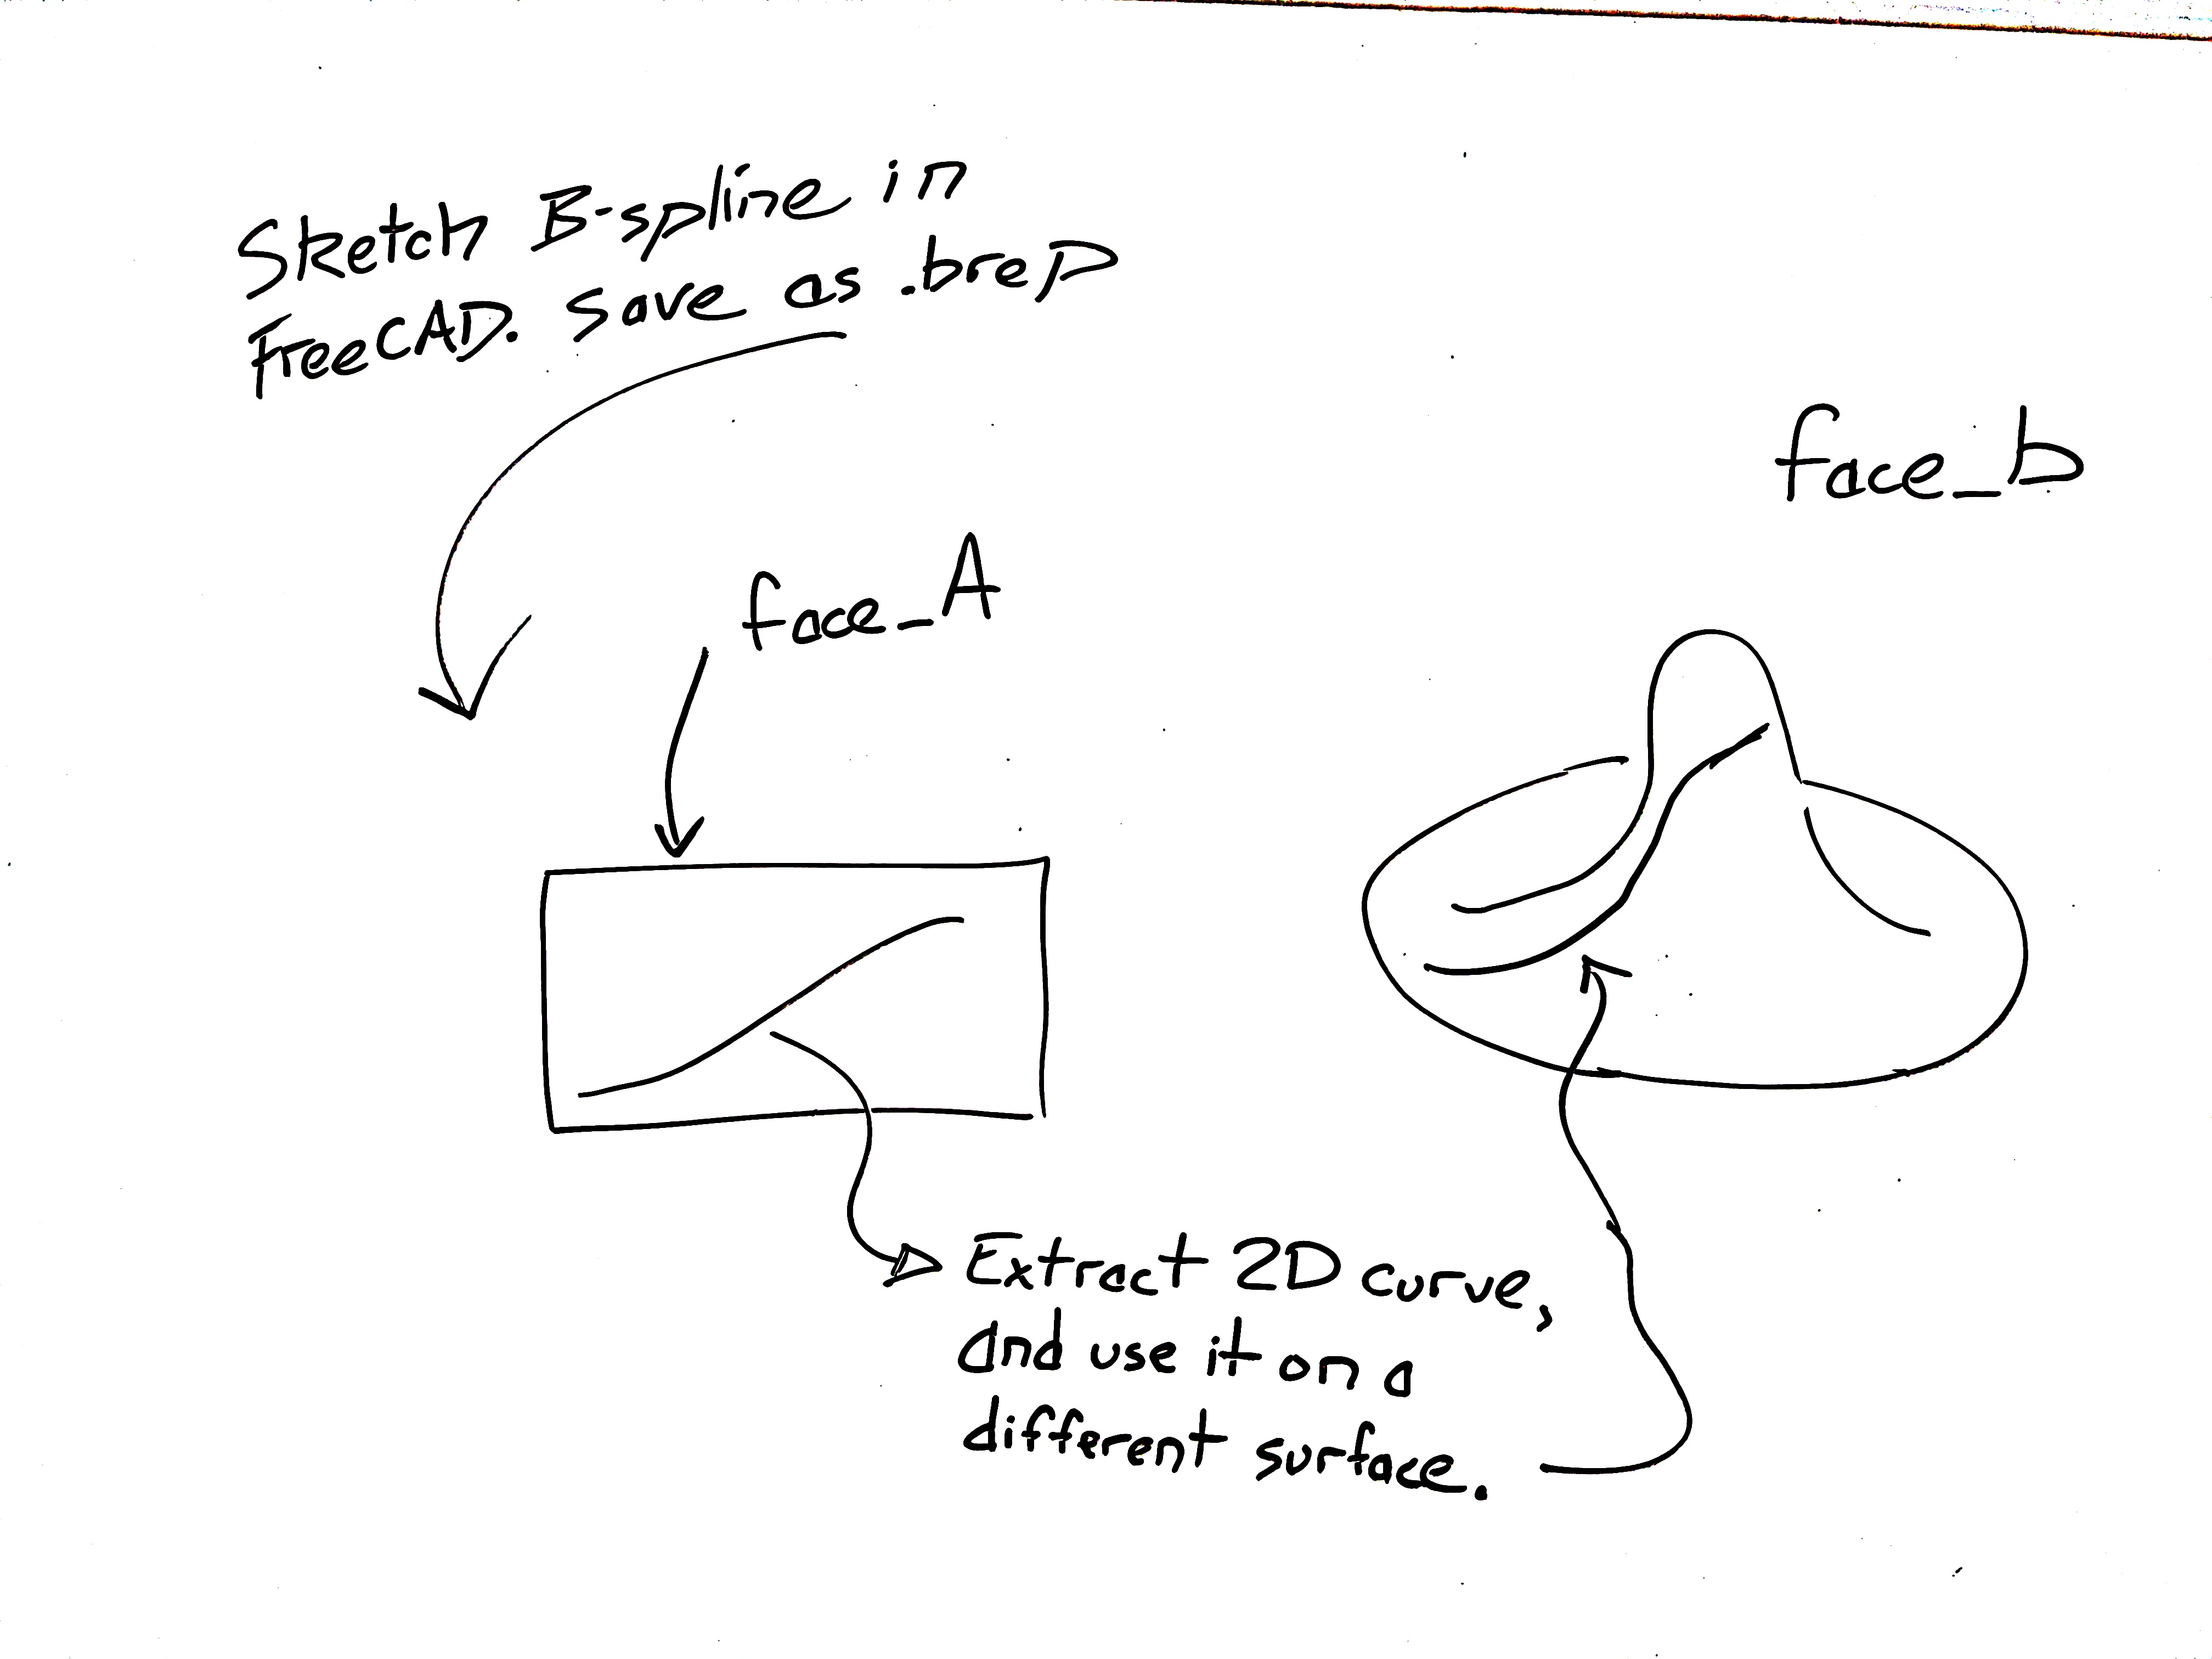 Sketch B-spline in
FreeCAD. Save as .brep
face_b
face_A
Extract 2D curve,
and use it on a
different surface.